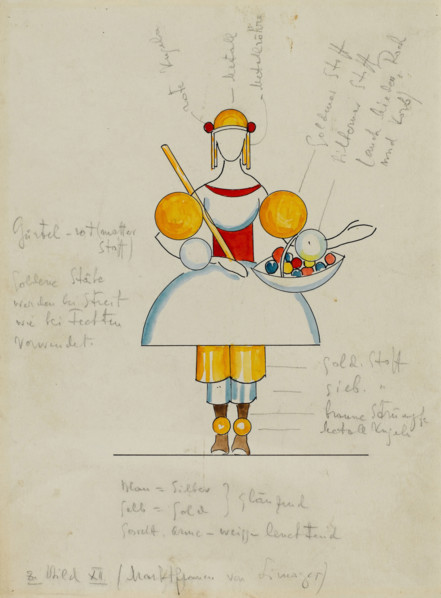 rote Kugeln
Metall
Metallröhre
Goldener Stoff
Silberner Stoff
(auch
und Korb)
Gürtel - rot (matter
Stoff)
Goldene Stäbe
werden bei Streit
wie bei Fechten
verwendet.
Gold. Stoff
braune Strümpfe
Metall Kugeln
blau = Silber } glänzend
Gelb = Gold
Gesicht. Arme - weiss - leuchtend
Bild XII (Marktfrauen von